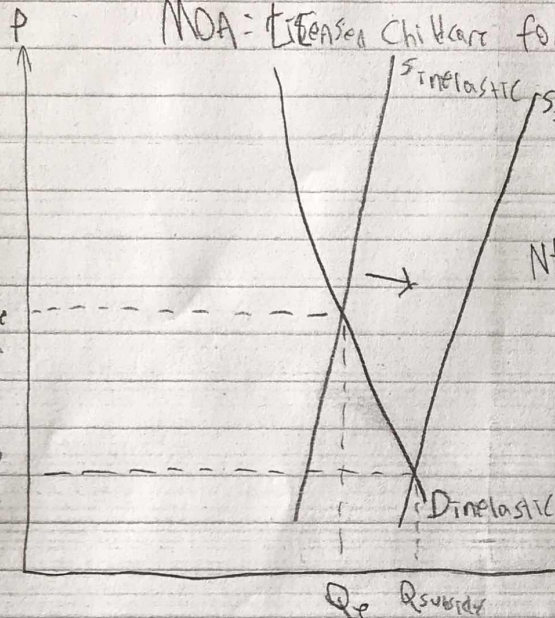 P
MDA: Licensed Childcare fo
S inelastic
S
N
e
D inelastic
Qe Qsubsidy